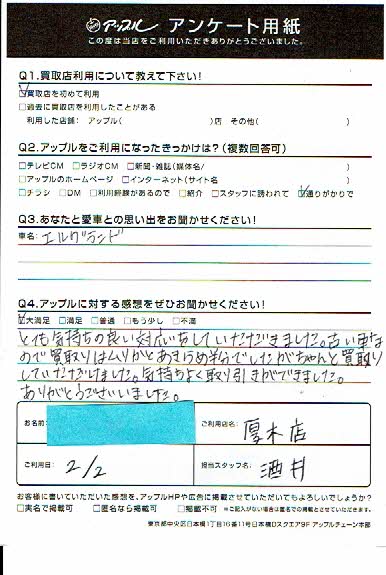 アップル アンケート用紙
この度は当店をご利用いただきありがとうございました。
Q1.買取店利用について教えて下さい!
☑買取店を初めて利用
□過去に買取店を利用したことがある
利用した店舗: アップル( )店 その他( )
Q2.アップルをご利用になったきっかけは?(複数回答可)
□テレビCM □ラジオCM □新聞・雑誌(媒体名/ )
□アップルのホームページ □インターネット(サイト名 )
□チラシ □DM □利用経験があるので □紹介 □スタッフに誘われて ☑通りがかりで
Q3.あなたと愛車との思い出をお聞かせください!
車名: エルグランド
Q4.アップルに対する感想をぜひお聞かせください!
☑大満足 □満足 □普通 □もう少し □不満
とても気持ちの良い対応をしていただきました。古い車な
ので買取りはムリかとあきらめ半分でしたがちゃんと買取り
していただけました。気持ちよく取り引きができました。
ありがとうございました。
お名前:
ご利用店名: 厚木店
ご利用日: 2/2
担当スタッフ名: 酒井
お客様に書いていただいた感想を、アップルHPや広告に掲載させていただいてもよろしいでしょうか?
□実名で掲載可 □匿名なら掲載可 □掲載不可 ※ご記入がない場合は匿名での掲載とさせていただきます。
東京都中央区日本橋1丁目16番11号日本橋Dスクエア9F アップルチェーン本部